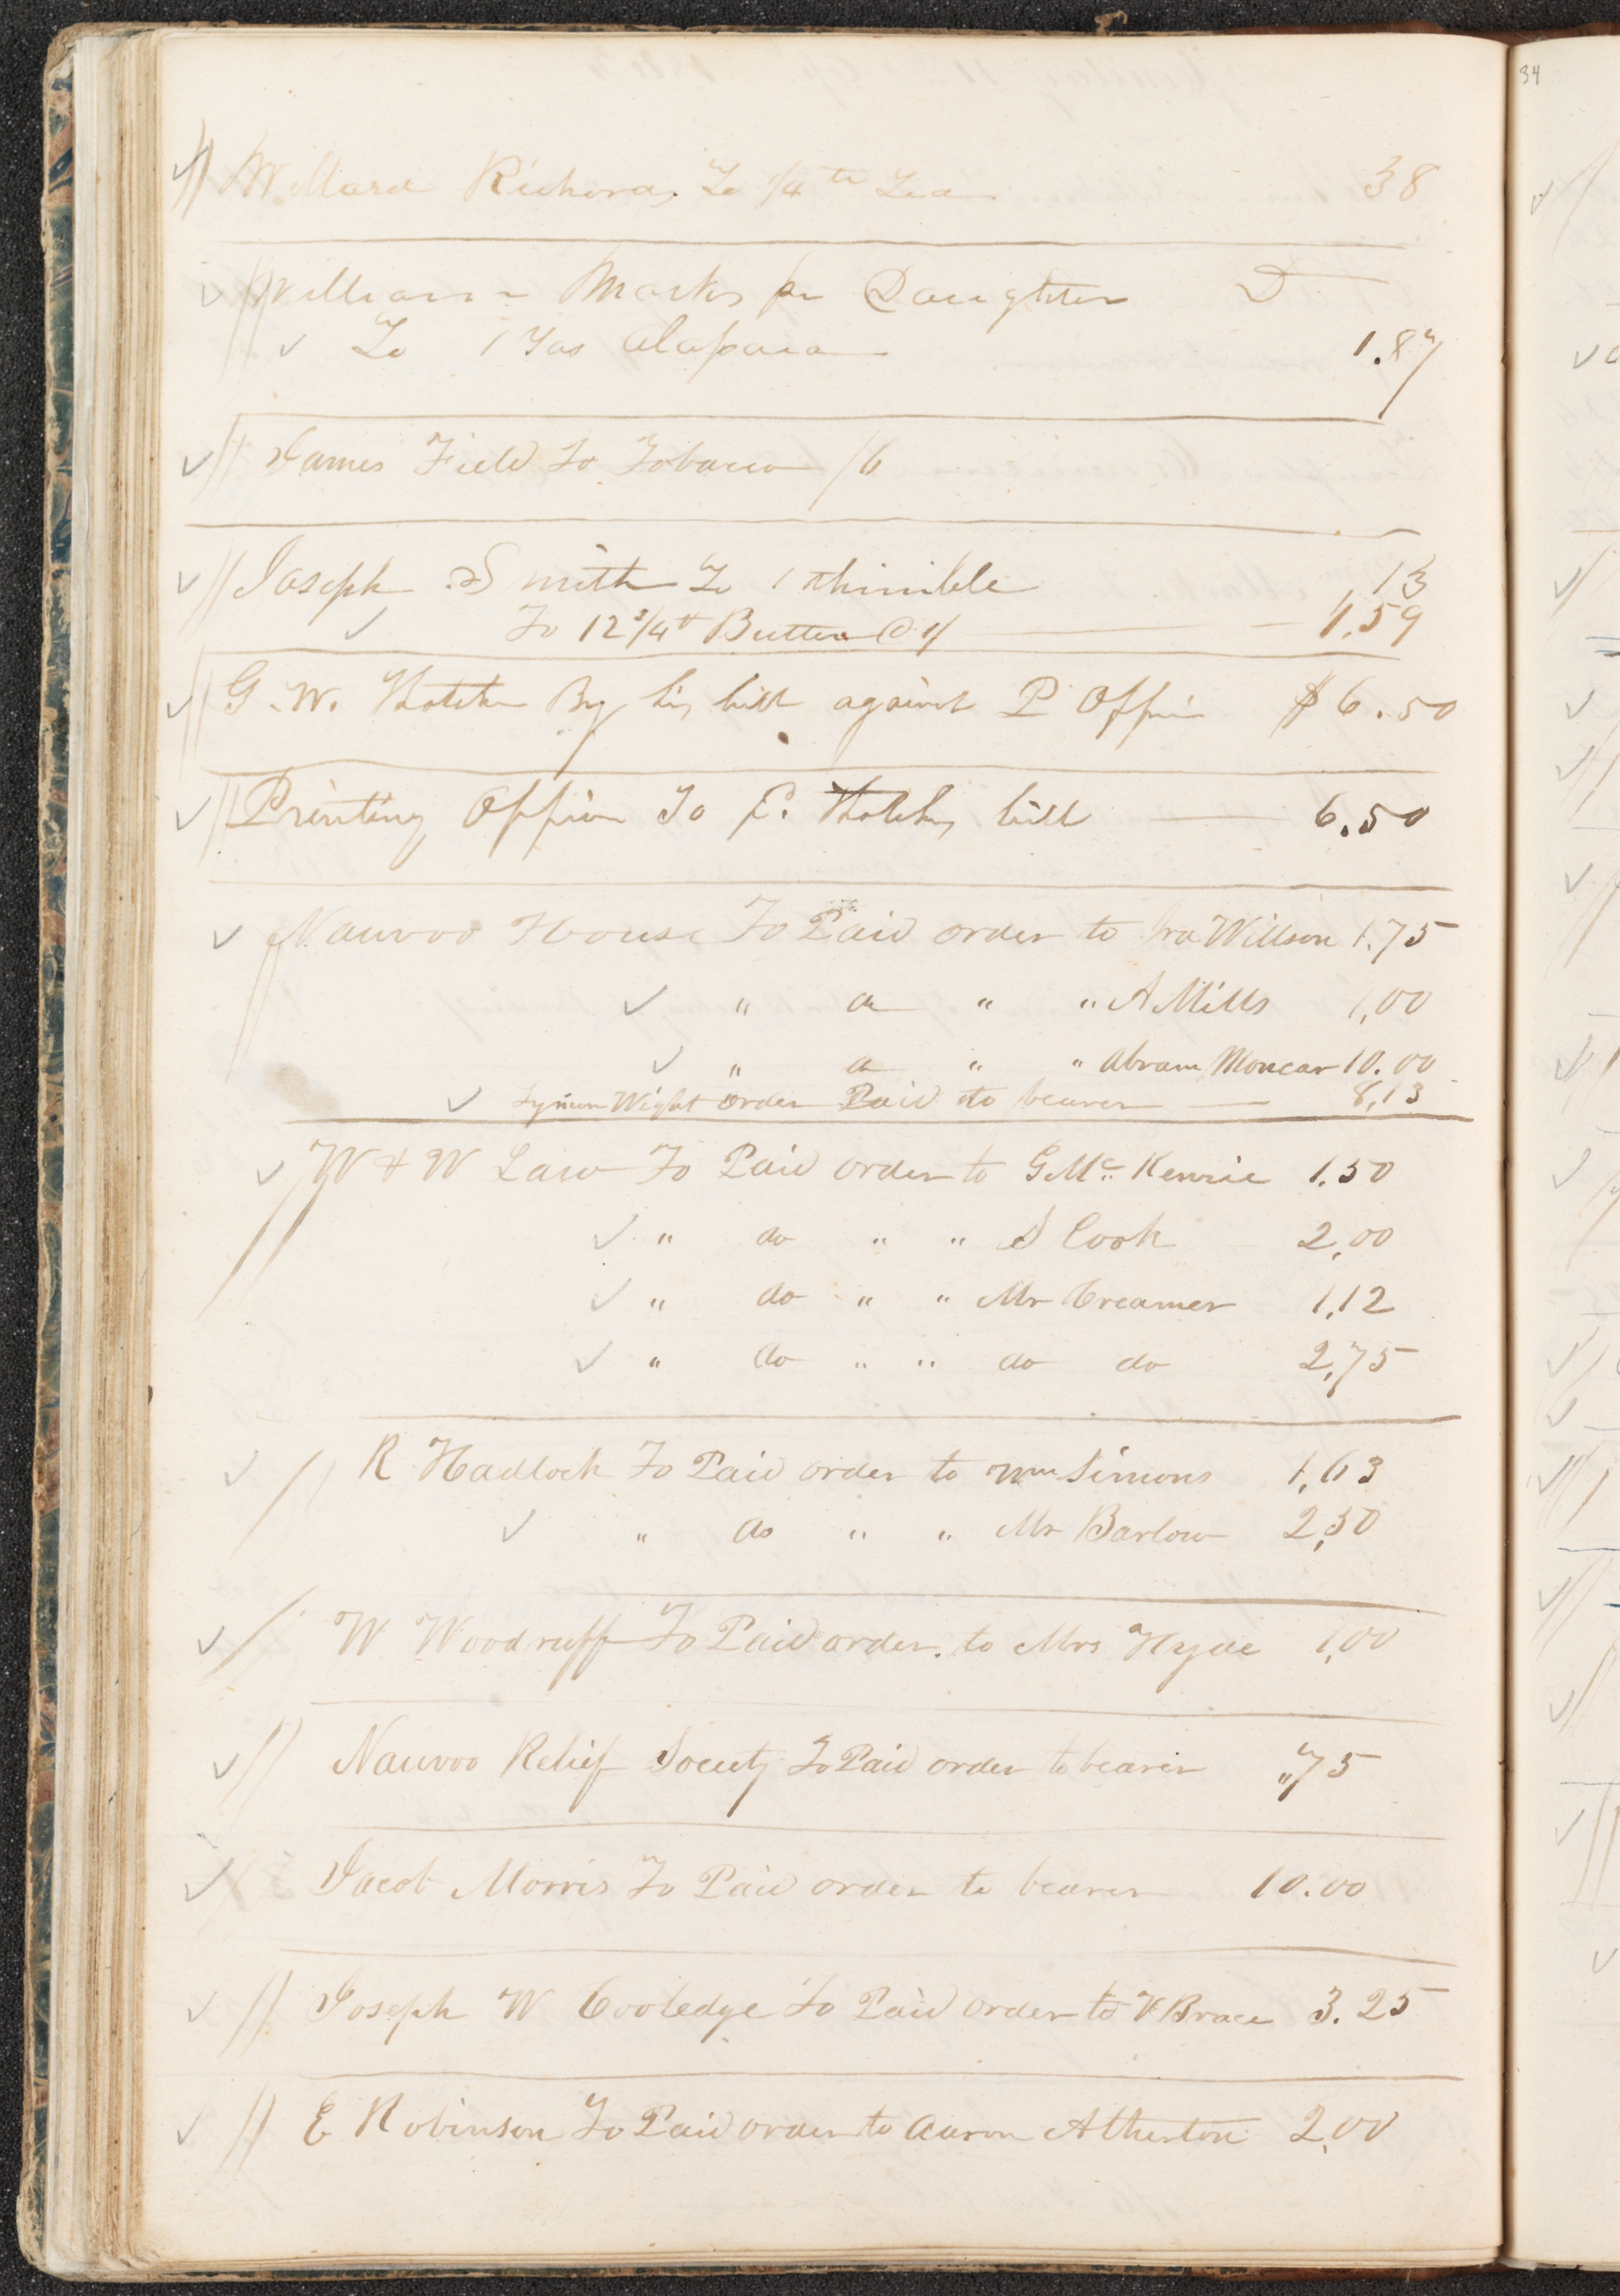 34
Willard Richards To 1/4 lb Tea 38
William Marks pr Daughter D
To 1 Yds Alapaca 1.87
James Field To Tobacco /6
Joseph Smith To 1 thimble 13
To 12 3/4 lb Butter @ 1,59
G. W. By his bill against P Office $6.50
Printing Office To bill 6.50
Nauvoo House To Paid order to Ira Willson 1.75
" do " " A Mills 1,00
" do " " Abram 10.00
Lyman Wight order Paid to bearer 8,13
W & W Law To Paid order to G Mc Kenzie 1.50
" do " " S Cook 2,00
" do " " Mr Creamer 1,12
" do " " do do 2,75
R Hadlock To Paid order to Wm Simons 1,63
" do " " Mr Barlow 2,50
W Woodruff To Paid order. to Mrs Hyde 1,00
Nauvoo Relief Society To Paid order to bearer "75
Jacob Morris To Paid order to bearer 10.00
Joseph W Cooledge To Paid order to Brace 3.25
E Robinson To Paid order to Aaron Atherton 2,00